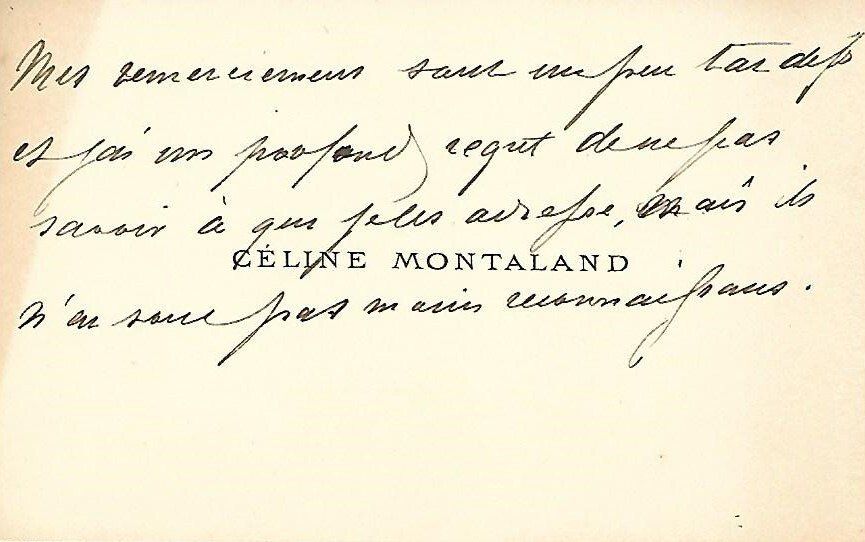 Mes remerciements sont un peu tardifs
et j'ai un profond regret de ne pas
savoir à qui je les adresse, mais ils
CÉLINE MONTALAND
n'en sont pas moins reconnaissans.